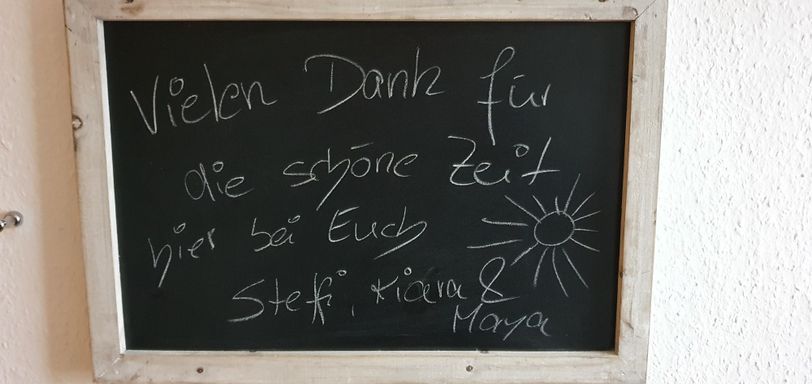 Vielen Dank für
die schöne Zeit
hier bei Euch
Steffi, Kiara &
Maya